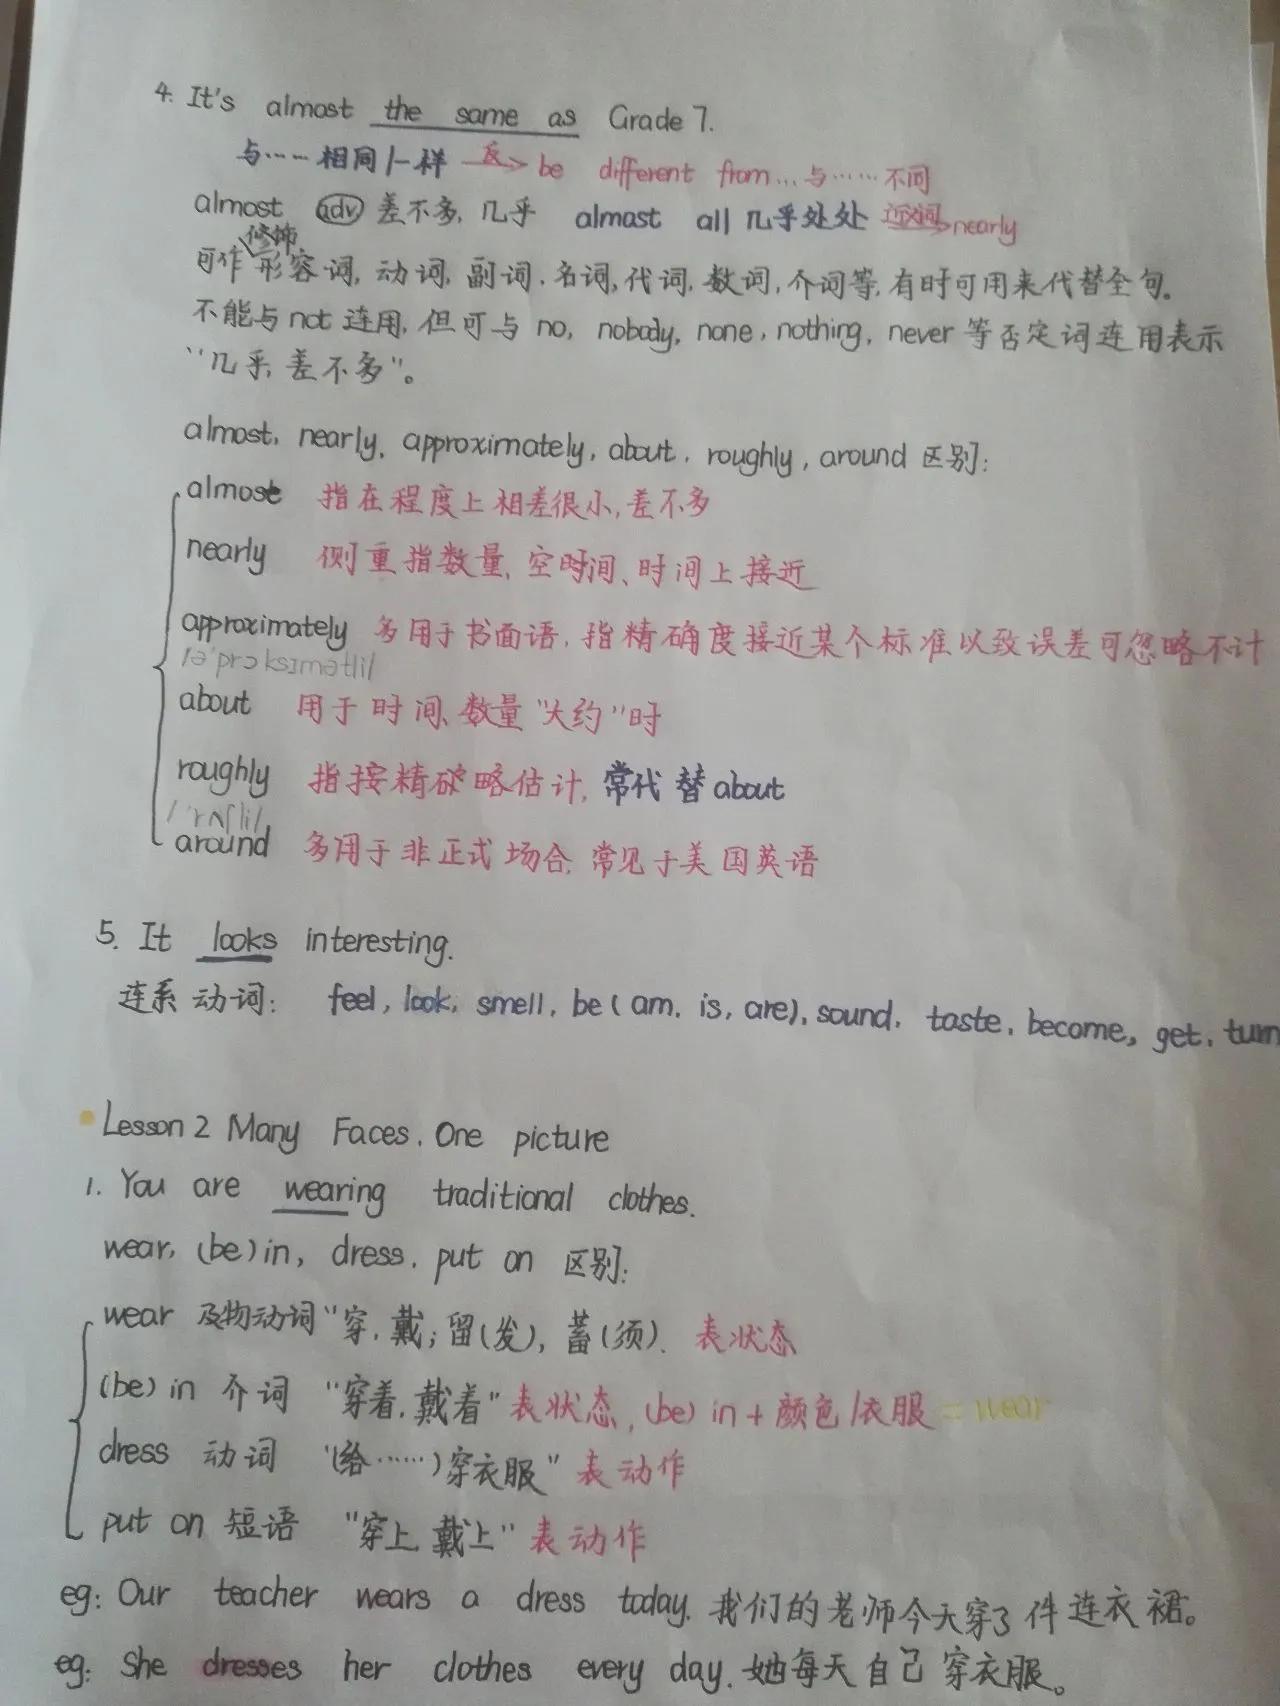 4. It's almost the same as Grade 7.
与……相同/一样 反> be different from... 与……不同
almost adv 差不多, 几乎 almast all 几乎处处 近义词 nearly
修饰
可作形容词, 动词, 副词. 名词, 代词, 数词, 介词等, 有时可用来代替全句。
不能与 not 连用, 但可与 no, nobody, none, nothing, never 等否定词连用表示
"几乎, 差不多"。
almost, nearly, approximately, about, roughly, around 区别:
almost 指在程度上相差很小, 差不多
nearly 侧重指数量、空时间、时间上接近
approximately 多用于书面语, 指精确度接近某个标准以致误差可忽略不计
/ə'prɔksɪmətli/
about 用于时间、数量"大约"时
roughly 指按精破略估计, 常代替about
/'rʌfli/
around 多用于非正式场合, 常见于美国英语
5. It looks interesting.
连系动词: feel, look, smell, be (am, is, are), sound, taste, become, get, turn
Lesson 2 Many Faces, One picture
1. You are wearing traditional clothes.
wear, (be) in, dress, put on 区别:
wear 及物动词 "穿, 戴; 留(发), 蓄(须). 表状态
(be) in 介词 "穿着, 戴着" 表状态, (be) in + 颜色/衣服 = wear
dress 动词 "(给……)穿衣服" 表动作
put on 短语 "穿上, 戴上" 表动作
eg: Our teacher wears a dress today. 我们的老师今天穿了件连衣裙。
eg: She dresses her clothes every day. 她每天自己穿衣服。